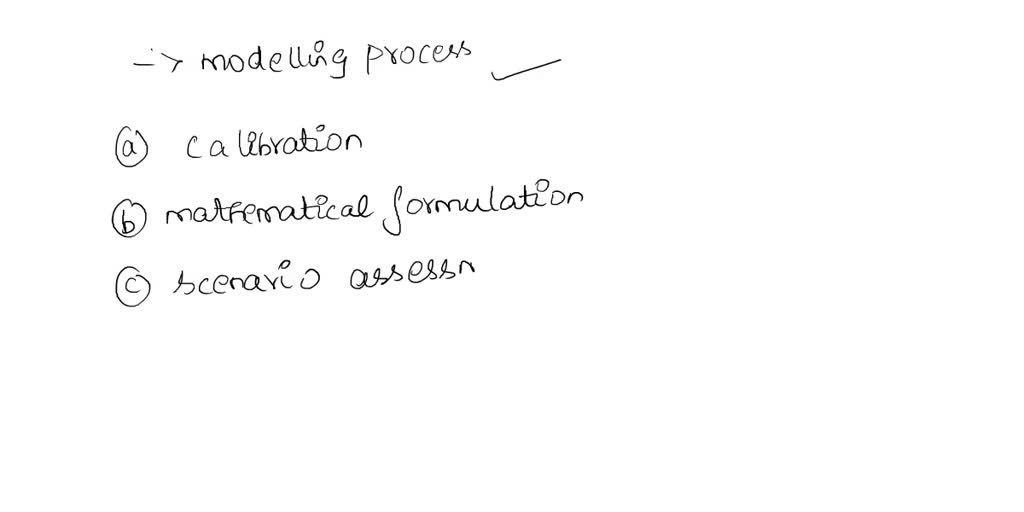 -> modelling process
(a) calibration
(b) mathematical formulation
(c) scenario assessn